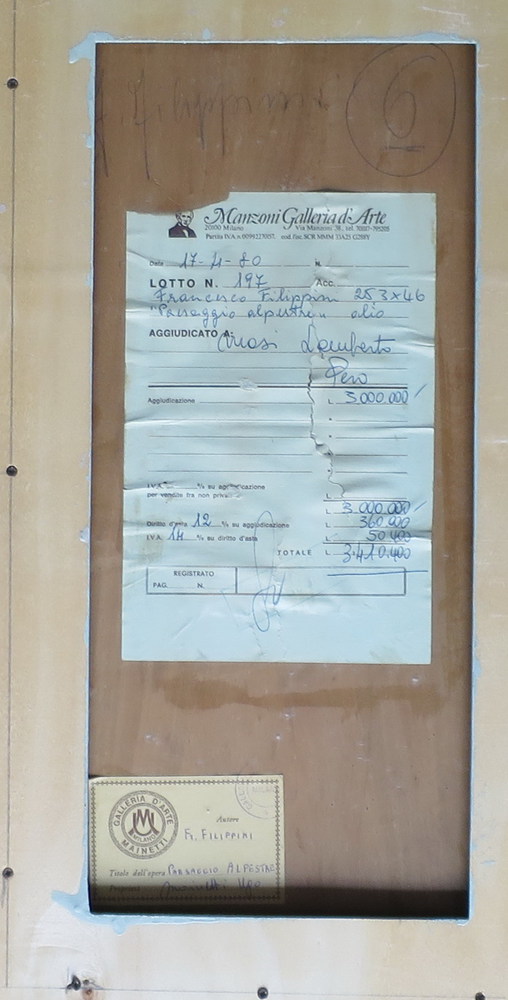 F. Filippini
6
Manzoni Galleria d'Arte
20100 Milano Via Manzoni 38, tel.
Partita IVA n. cod. fisc.
Data 17-4-80 N.
LOTTO N. 197 Acc.
Francesco Filippini 25,3x46
"Paesaggio alpestre" olio
AGGIUDICATO A:
Lamberto
Pero
Aggiudicazione L. 3.000.000
I.V.A. % su aggiudicazione
per vendite tra non privati L.
L. 3.000.000
Diritto d'asta 12 % su aggiudicazione L. 360.000
I.V.A. 14 % su diritto d'asta L. 50.400
TOTALE L. 3.410.400
REGISTRATO
PAG. N.
GALLERIA D'ARTE
MILANO
MAINETTI
Autore
Fr. FILIPPINI
Titolo dell'opera PAESAGGIO ALPESTRE